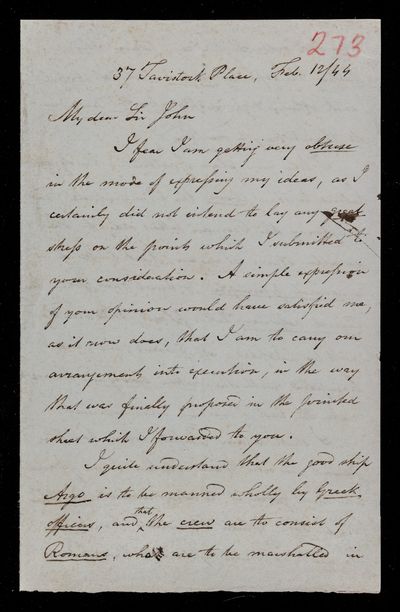 273
37 Tavistock Place, Feb. 12/44
My dear Sir John
I fear I am getting very obtuse
in the mode of expressing my ideas, as I
certainly did not intend to lay any great
stress on the points which I submitted to
your consideration. A simple expression
of your opinion would have satisfied me,
as it now does, that I am to carry our
arrangements into execution, in the way
that was finally proposed in the printed
sheet which I forwarded to you.
I quite understand that the good ship
Argo is to be manned wholly by Greek
officers, and that the crew are to consist of
Romans, who are to be marshalled in